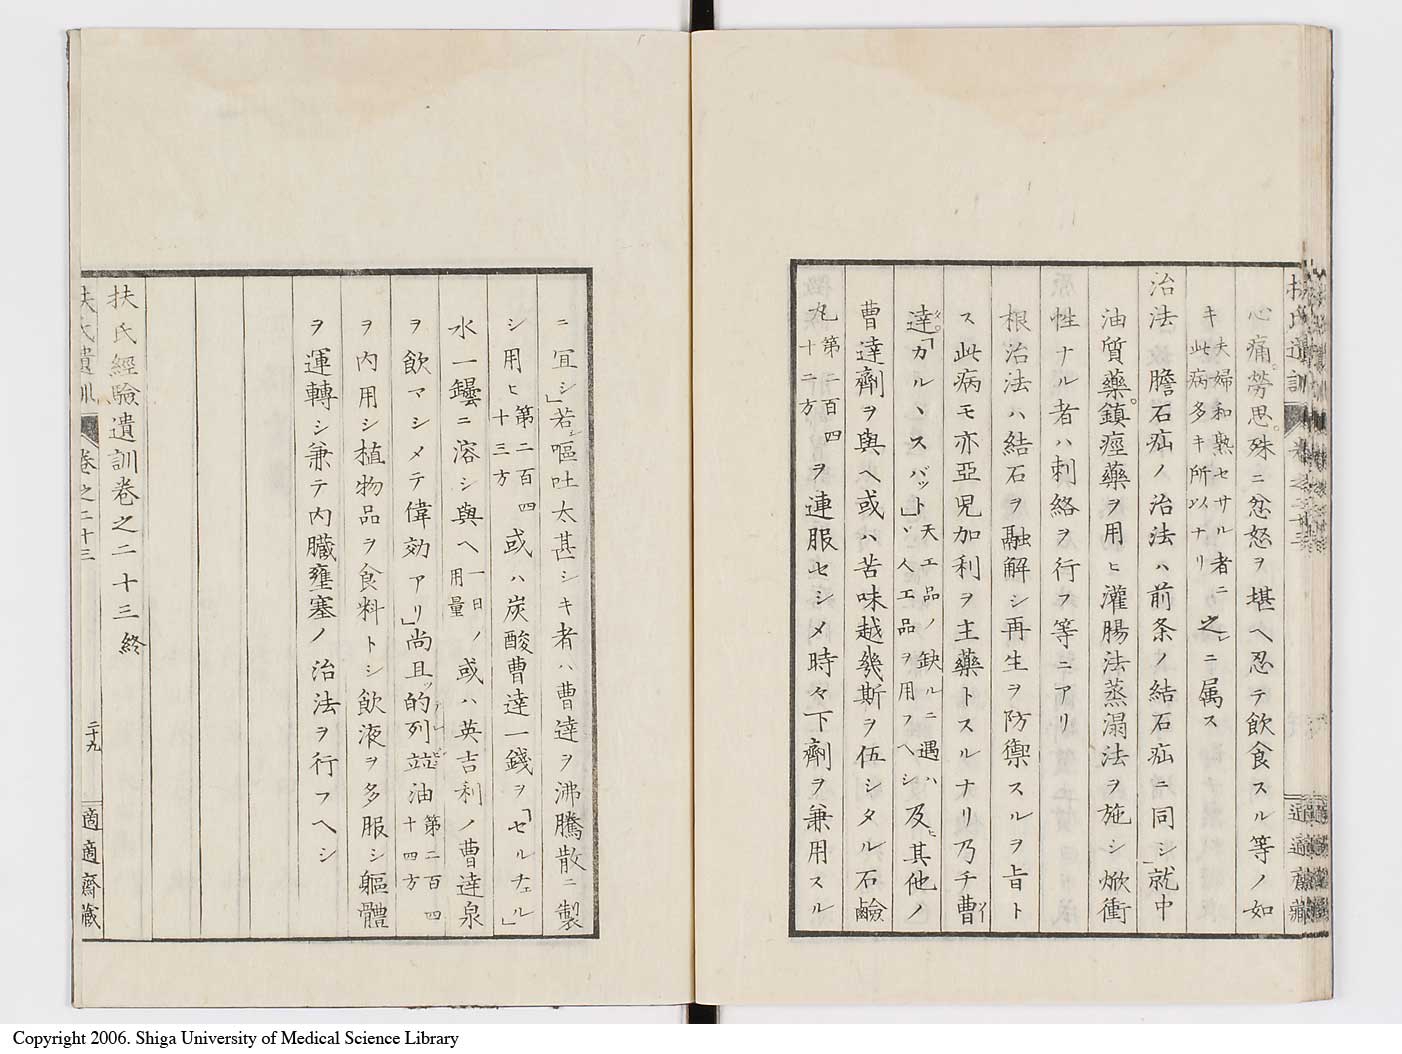 心痛勞思殊ニ忿怒ヲ堪ヘ忍テ飲食スル等ノ如
キ夫婦和熟セサル者ニ此病多キ所以ナリ之ニ属ス
治法膽石疝ノ治法ハ前条ノ結石疝ニ同シ」就中
油質藥鎮痙藥ヲ用ヒ灌腸法蒸溻法ヲ施シ焮衝
性ナル者ハ刺絡ヲ行フ等ニアリ
根治法ハ結石ヲ融解シ再生ヲ防禦スルヲ旨ト
ス此病モ亦亞児加利ヲ主藥トスルナリ乃チ曹
達「カルヽスバット」天工品ノ缺ルニ遇ハヾ人工品ヲ用フヘシ及ヒ其他ノ
曹達劑ヲ與ヘ或ハ苦味越幾斯ヲ伍シタル石鹸
丸第二百四十二方ヲ連服セシメ時々下劑ヲ兼用スル
ニ冝シ」若シ嘔吐太甚シキ者ハ曹達ヲ沸騰散ニ製
シ用ヒ第二百四十三方或ハ炭酸曹達一錢ヲ「セルチェル」
水一罎ニ溶シ與ヘ一日ノ用量或ハ英吉利ノ曹達泉
ヲ飲マシメテ偉効アリ」尚且ツ的列並油第二百四十四方
ヲ内用シ植物品ヲ食料トシ飲液ヲ多服シ軀體
ヲ運轉シ兼テ内臟壅塞ノ治法ヲ行フヘシ
扶氏經驗遺訓巻之二十三終
扶氏遺訓 巻之二十三 二十九 適適齋藏